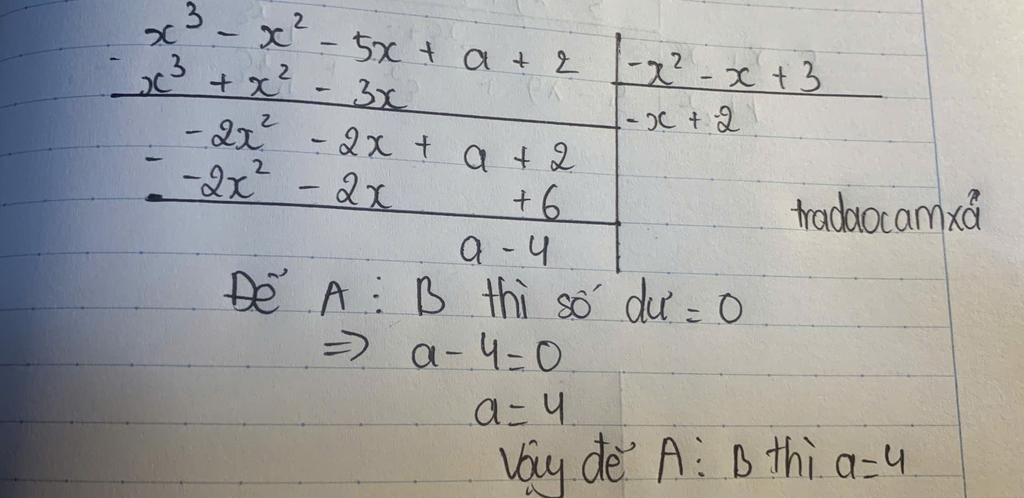 x³ - x² - 5x + a + 2 | -x² - x + 3
- x³ + x² - 3x | -x + 2
-2x² - 2x + a + 2
- -2x² - 2x + 6
a - 4
tradaocamxả
Để A ⋮ B thì số dư = 0
=> a - 4 = 0
a = 4
Vậy để A ⋮ B thì a = 4